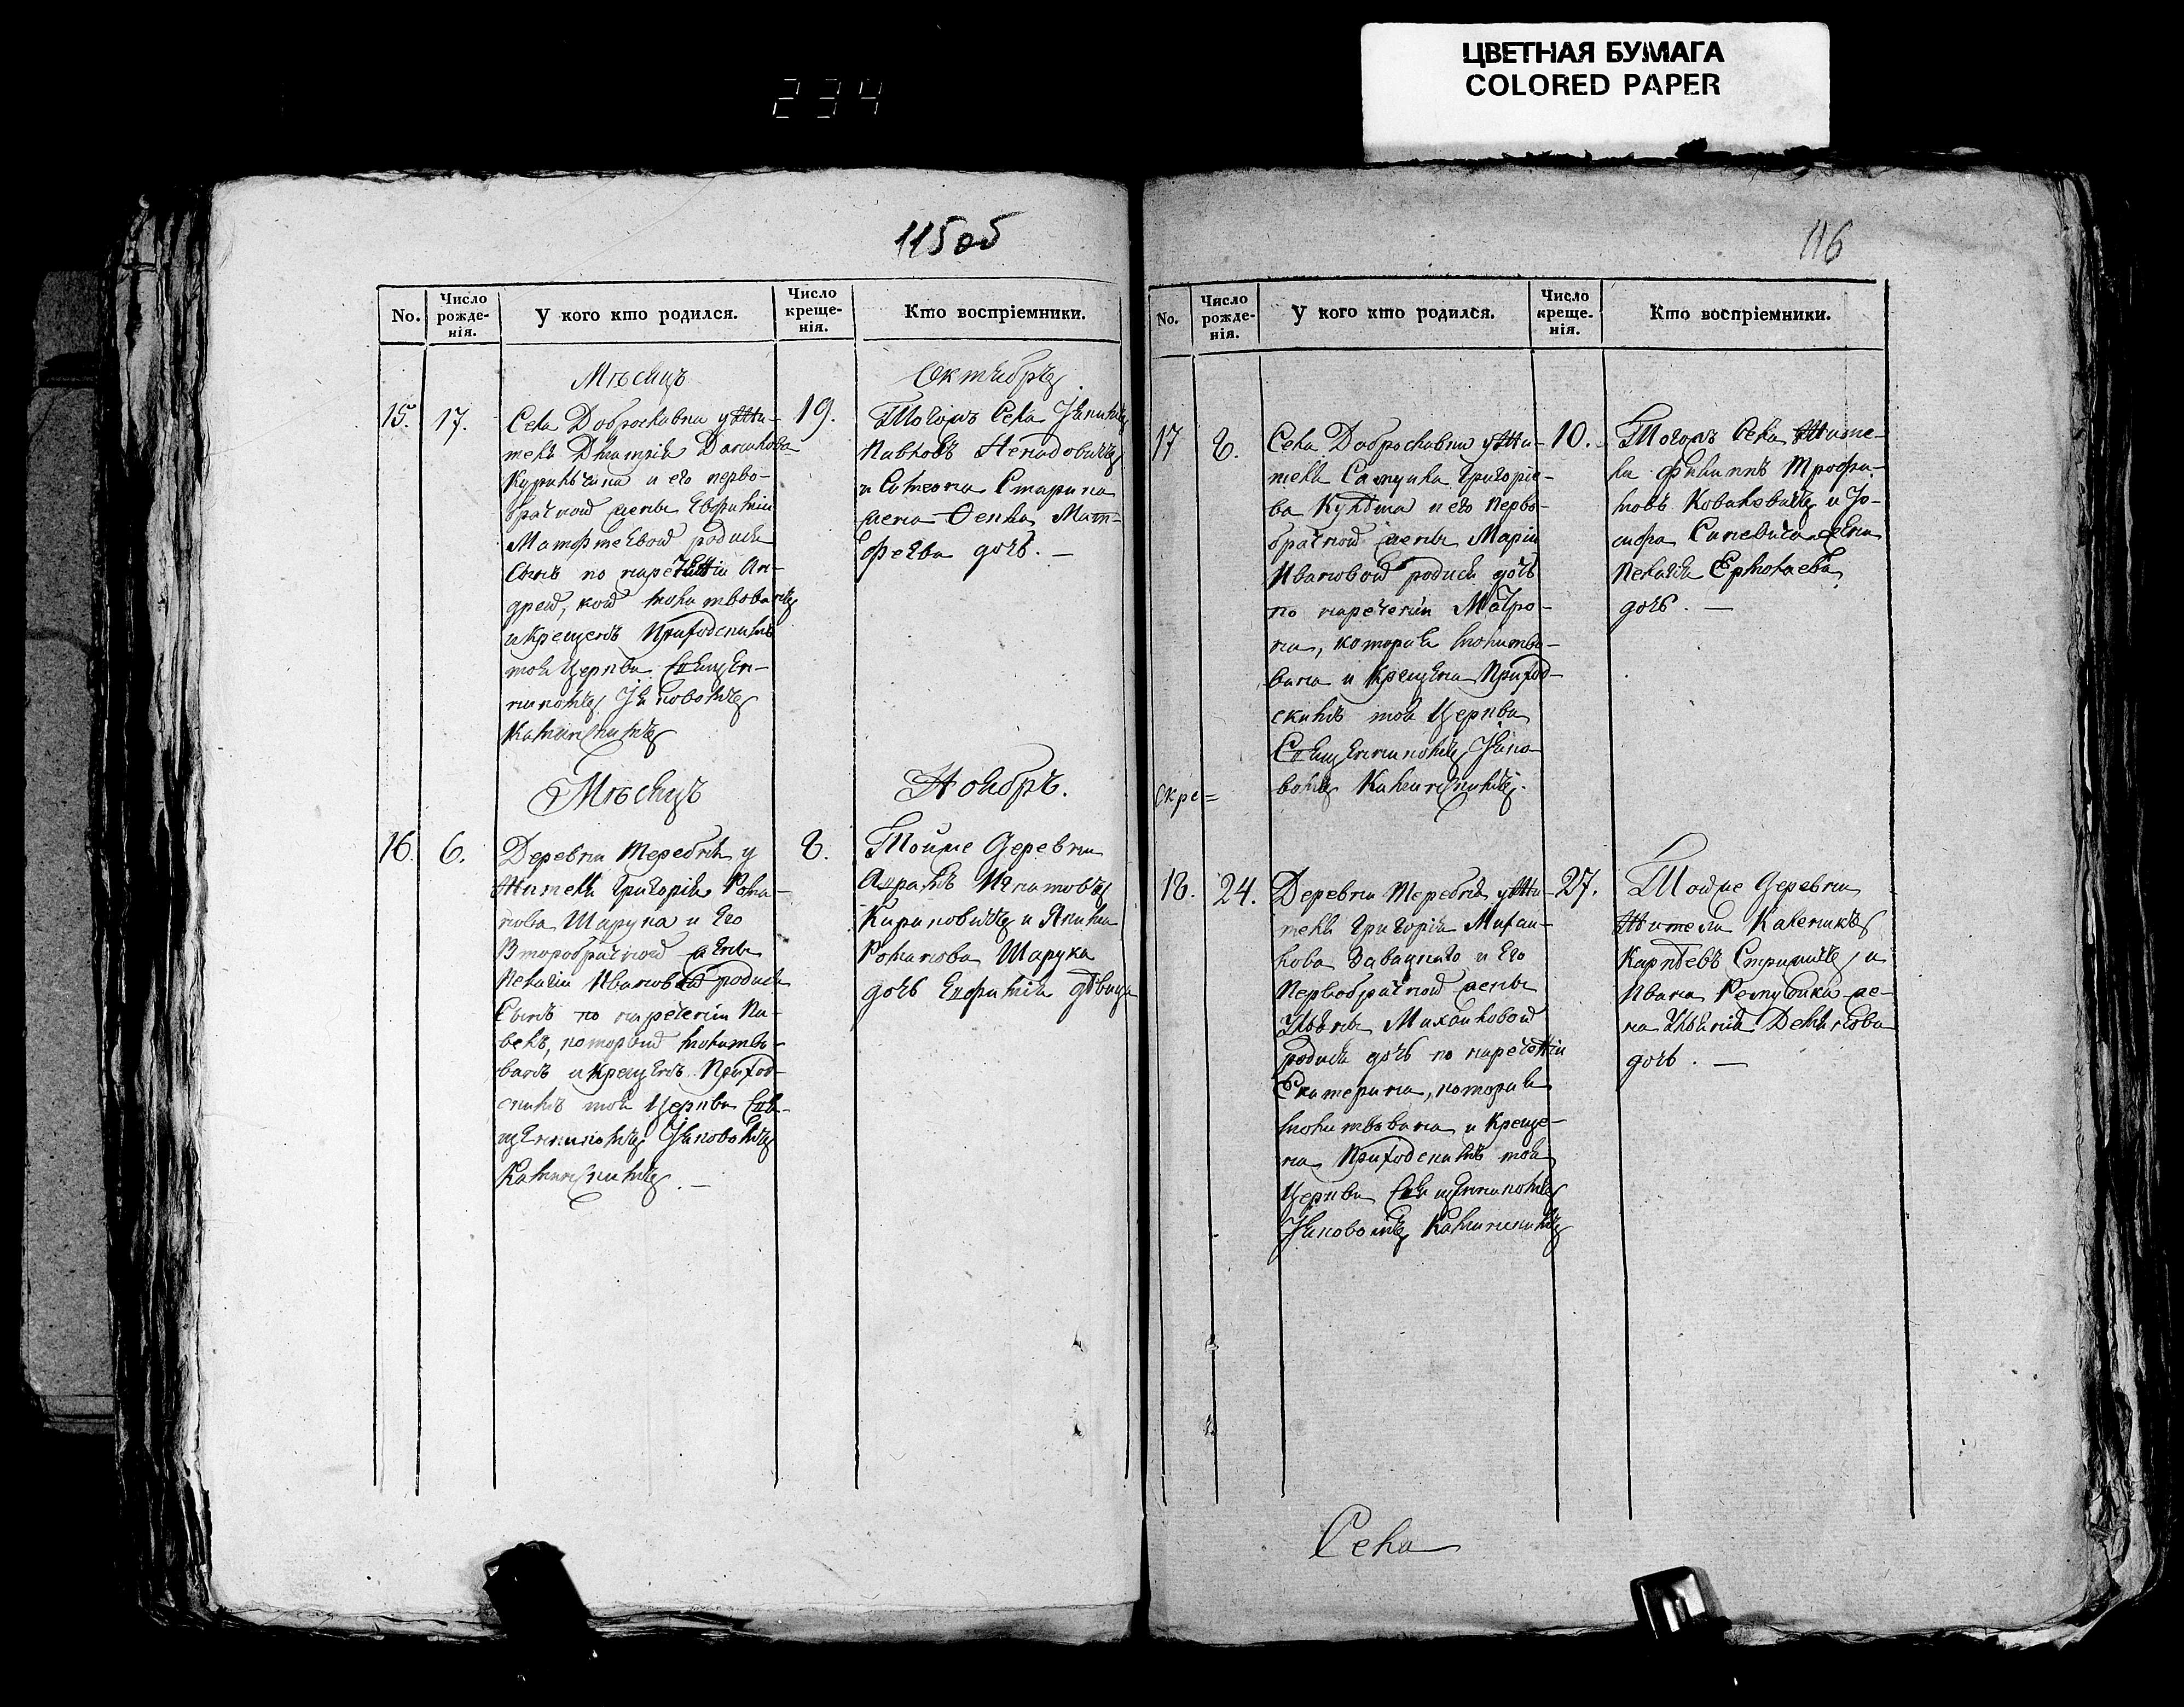 ЦВЕТНАЯ БУМАГА
COLORED PAPER
234
115об
No. Число рожденія. У кого кто родился. Число крещенія. Кто воспріемники.
Мѣсяцъ Октябрь
15. 17. 19.
Села Доброславки у Жи-
теля Дмитрія Данилова
и его перво-
брачной жены Евфиміи
родился
Сынъ по нареченіи Ан-
дрей, кой молитвованъ
и Крещенъ Приходскимъ
той Церкви Священ-
никомъ Яковомъ
Каминскимъ
Тогожъ Села Якимъ
Павловъ Ненадовичъ
и Симеона Старина
жена Фенна Мат-
фѣева дочь. —
Мѣсяцъ Ноябрь.
16. 6. 8.
Деревни Теребня у
Жителя Григорія Рома-
нова Шарука и Его
Второбрачной жены
Пелагіи Ивановой родился
Сынъ по нареченіи Па-
велъ, который молитво-
ванъ и Крещенъ Приход-
скимъ той Церкви Свя-
щенникомъ Яковомъ
Каминскимъ. —
Тойже Деревни
Игнатовъ
Кириковичъ и Якима
Романова Шарука
дочь Евфимія дѣвица
116
No. Число рожденія. У кого кто родился. Число крещенія. Кто воспріемники.
17 8. 10.
Села Доброславки у Жи-
теля Самуила Григоріе-
ва и его Перво-
брачной жены Маріи
Ивановой родися дочь
по нареченіи Матро-
на, которая молитво-
вана и Крещена Приход-
скимъ той Церкви
Священникомъ Яко-
вомъ Каминскимъ.
Тогожъ Села Жите-
ли Филиппъ Трофи-
мовъ Ковалевичъ и Іо-
сифа Синевича жена
Пелагія Ермолаева
дочь. —
скре=
18. 24. 27.
Деревни Теребня у Жи-
теля Григорія Михай-
лова Завацкаго и Его
Первобрачной жены
Ульяны Михайловой
родися дочь по нареченіи
Екатерина, которая
молитвована и Креще-
на Приходскимъ той
Церкви Священникомъ
Яковомъ Каминскимъ
Тойже Деревни
Жители Каленикъ
Карпѣевъ и
Ивана же-
на Ульянія Демьянова
дочь. —
Села